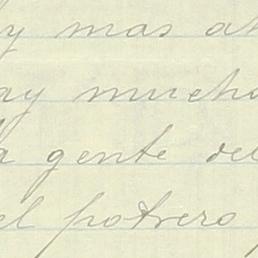 y mas at
ay mucho
a gente del
el potrero